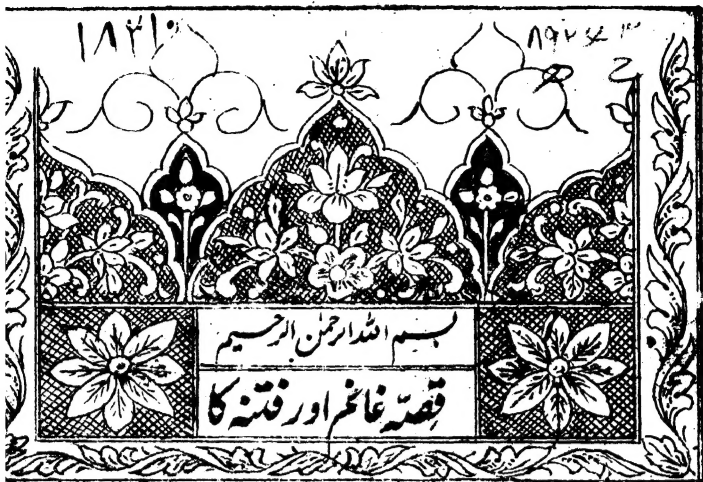 ۱۸۳۱۰
بسم الله الرحمٰن الرحیم
قصّہ غانم اور فتنہ کا